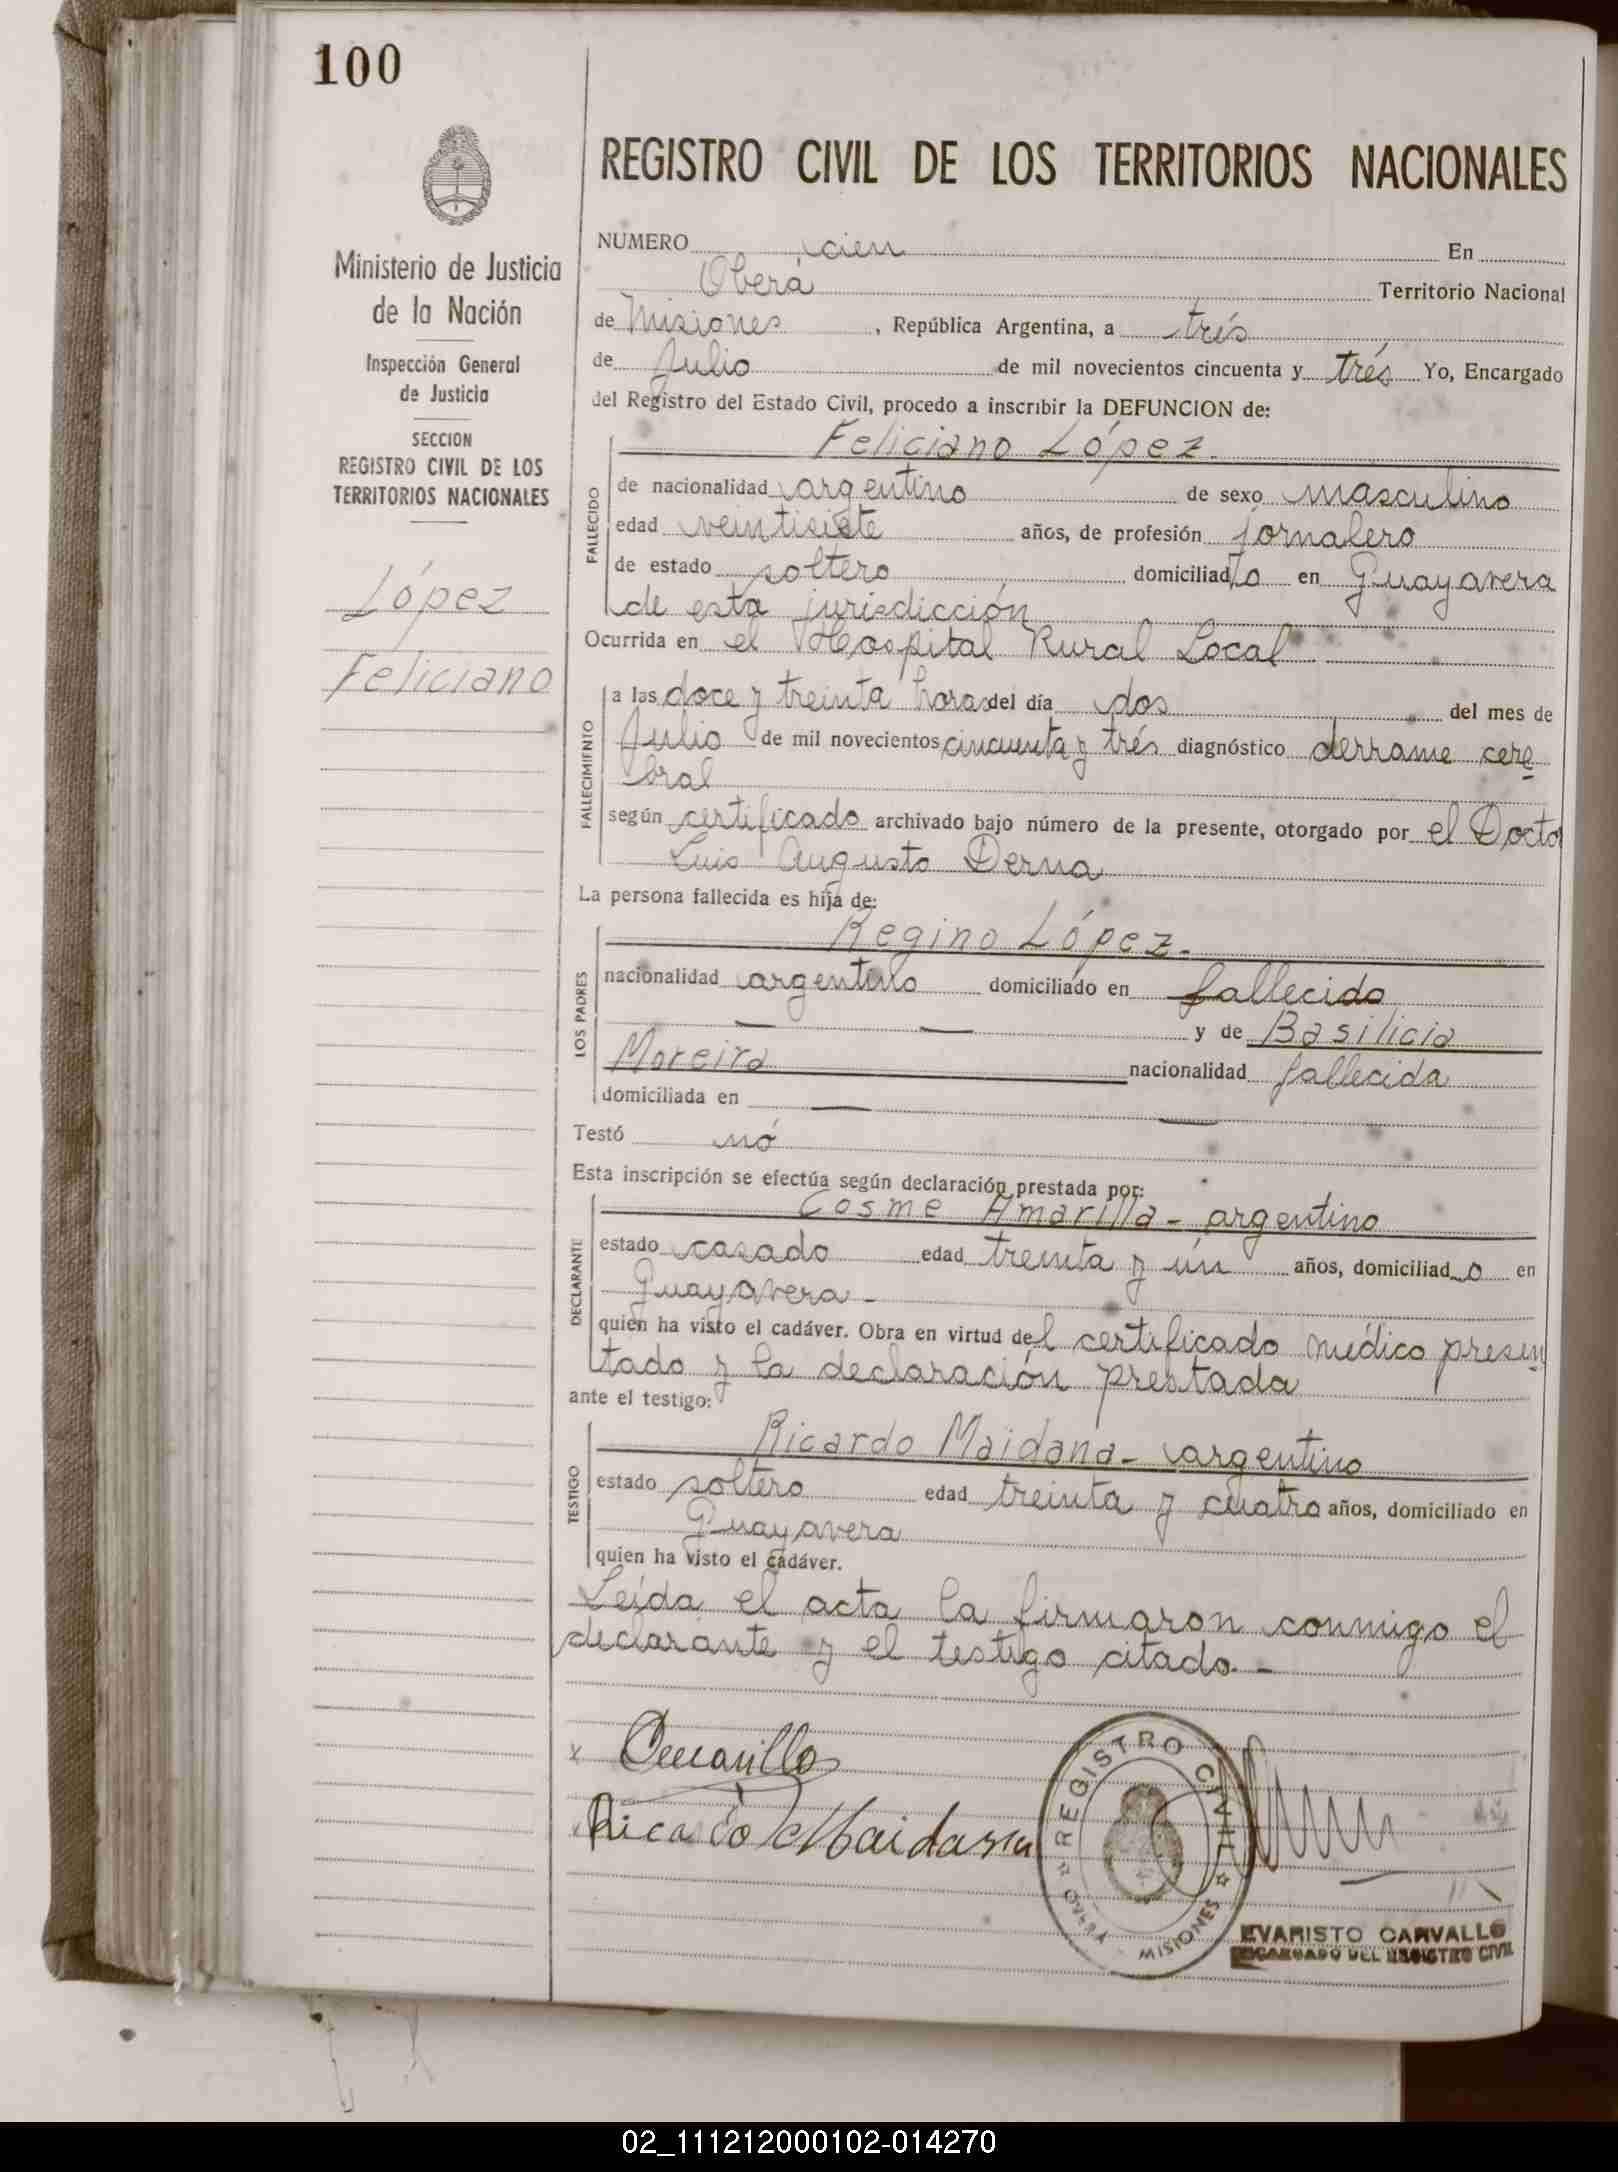 100
Ministerio de Justicia
de la Nación
Inspección General
de Justicia
SECCION
REGISTRO CIVIL DE LOS
TERRITORIOS NACIONALES
López
Feliciano
REGISTRO CIVIL DE LOS TERRITORIOS NACIONALES
NUMERO cien En
Oberá Territorio Nacional
de Misiones , República Argentina, a trés
de Julio de mil novecientos cincuenta y trés Yo, Encargado
del Registro del Estado Civil, procedo a inscribir la DEFUNCION de:
Feliciano López.
FALLECIDO
de nacionalidad argentino de sexo masculino
edad veintisiete años, de profesión jornalero
de estado soltero domiciliado en Guayavera
de esta jurisdicción
Ocurrida en el Hospital Rural Local
FALLECIMIENTO
a las doce y treinta horas del día dos del mes de
Julio de mil novecientos cincuenta y trés diagnóstico derrame cere
bral
según certificado archivado bajo número de la presente, otorgado por el Docto
Luis Augusto Derna
La persona fallecida es hija de:
LOS PADRES
Regino López.
nacionalidad argentino domiciliado en fallecido
— — y de Basilicia
Moreira nacionalidad fallecida
domiciliada en — —
Testó nó
Esta inscripción se efectúa según declaración prestada por:
DECLARANTE
Cosme Amarilla - argentino
estado casado edad treinta y ún años, domiciliado en
Guayavera -
quien ha visto el cadáver. Obra en virtud del certificado médico presen
tado y la declaración prestada
ante el testigo:
TESTIGO
Ricardo Maidana - argentino
estado soltero edad treinta y cuatro años, domiciliado en
Guayavera
quien ha visto el cadáver.
Leída el acta la firmaron conmigo el
declarante y el testigo citado. -
x CAmarilla
Ricardo Maidana
REGISTRO CIVIL
OBERA - MISIONES
EVARISTO CARVALLO
ENCARGADO DEL REGISTRO CIVIL
02_111212000102-014270